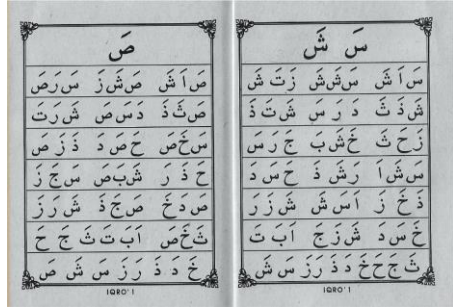 سَ شَ
سَاَشَ سَشَشَ زَتَشَ
شَذَثَ دَرَسَ شَتَذَ
زَحَثَ خَشَبَ جَرَسَ
سَشَاَ رَشَذَ حَسَدَ
ذَخَزَ اَسَشَ شَزَرَ
خَسَدَ شَزَجَ اَبَتَ
ثَجَحَخَدَذَرَزَسَشَ
IQRO' 1
صَ
صَاَشَ صَشَزَ سَرَصَ
صَثَذَ دَسَصَ شَرَتَ
سَخَصَ حَصَدَ ذَزَصَ
حَذَرَ شَبَصَ سَجَزَ
صَدَخَ صَجَذَ شَرَزَ
ثَخَصَ اَبَتَثَجَحَ
خَ دَ ذَ رَ زَ سَ شَ صَ
IQRO' 1